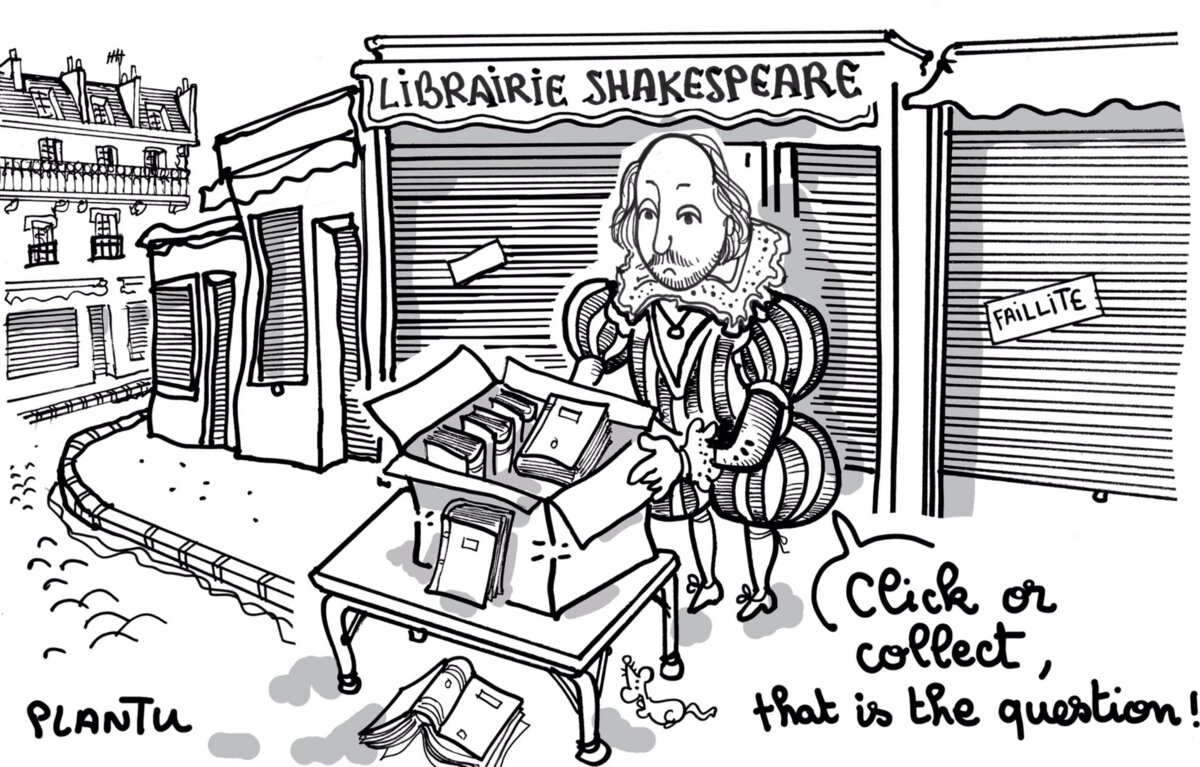 LIBRAIRIE SHAKESPEARE
FAILLITE
Click or
collect,
that is the question!
PLANTU